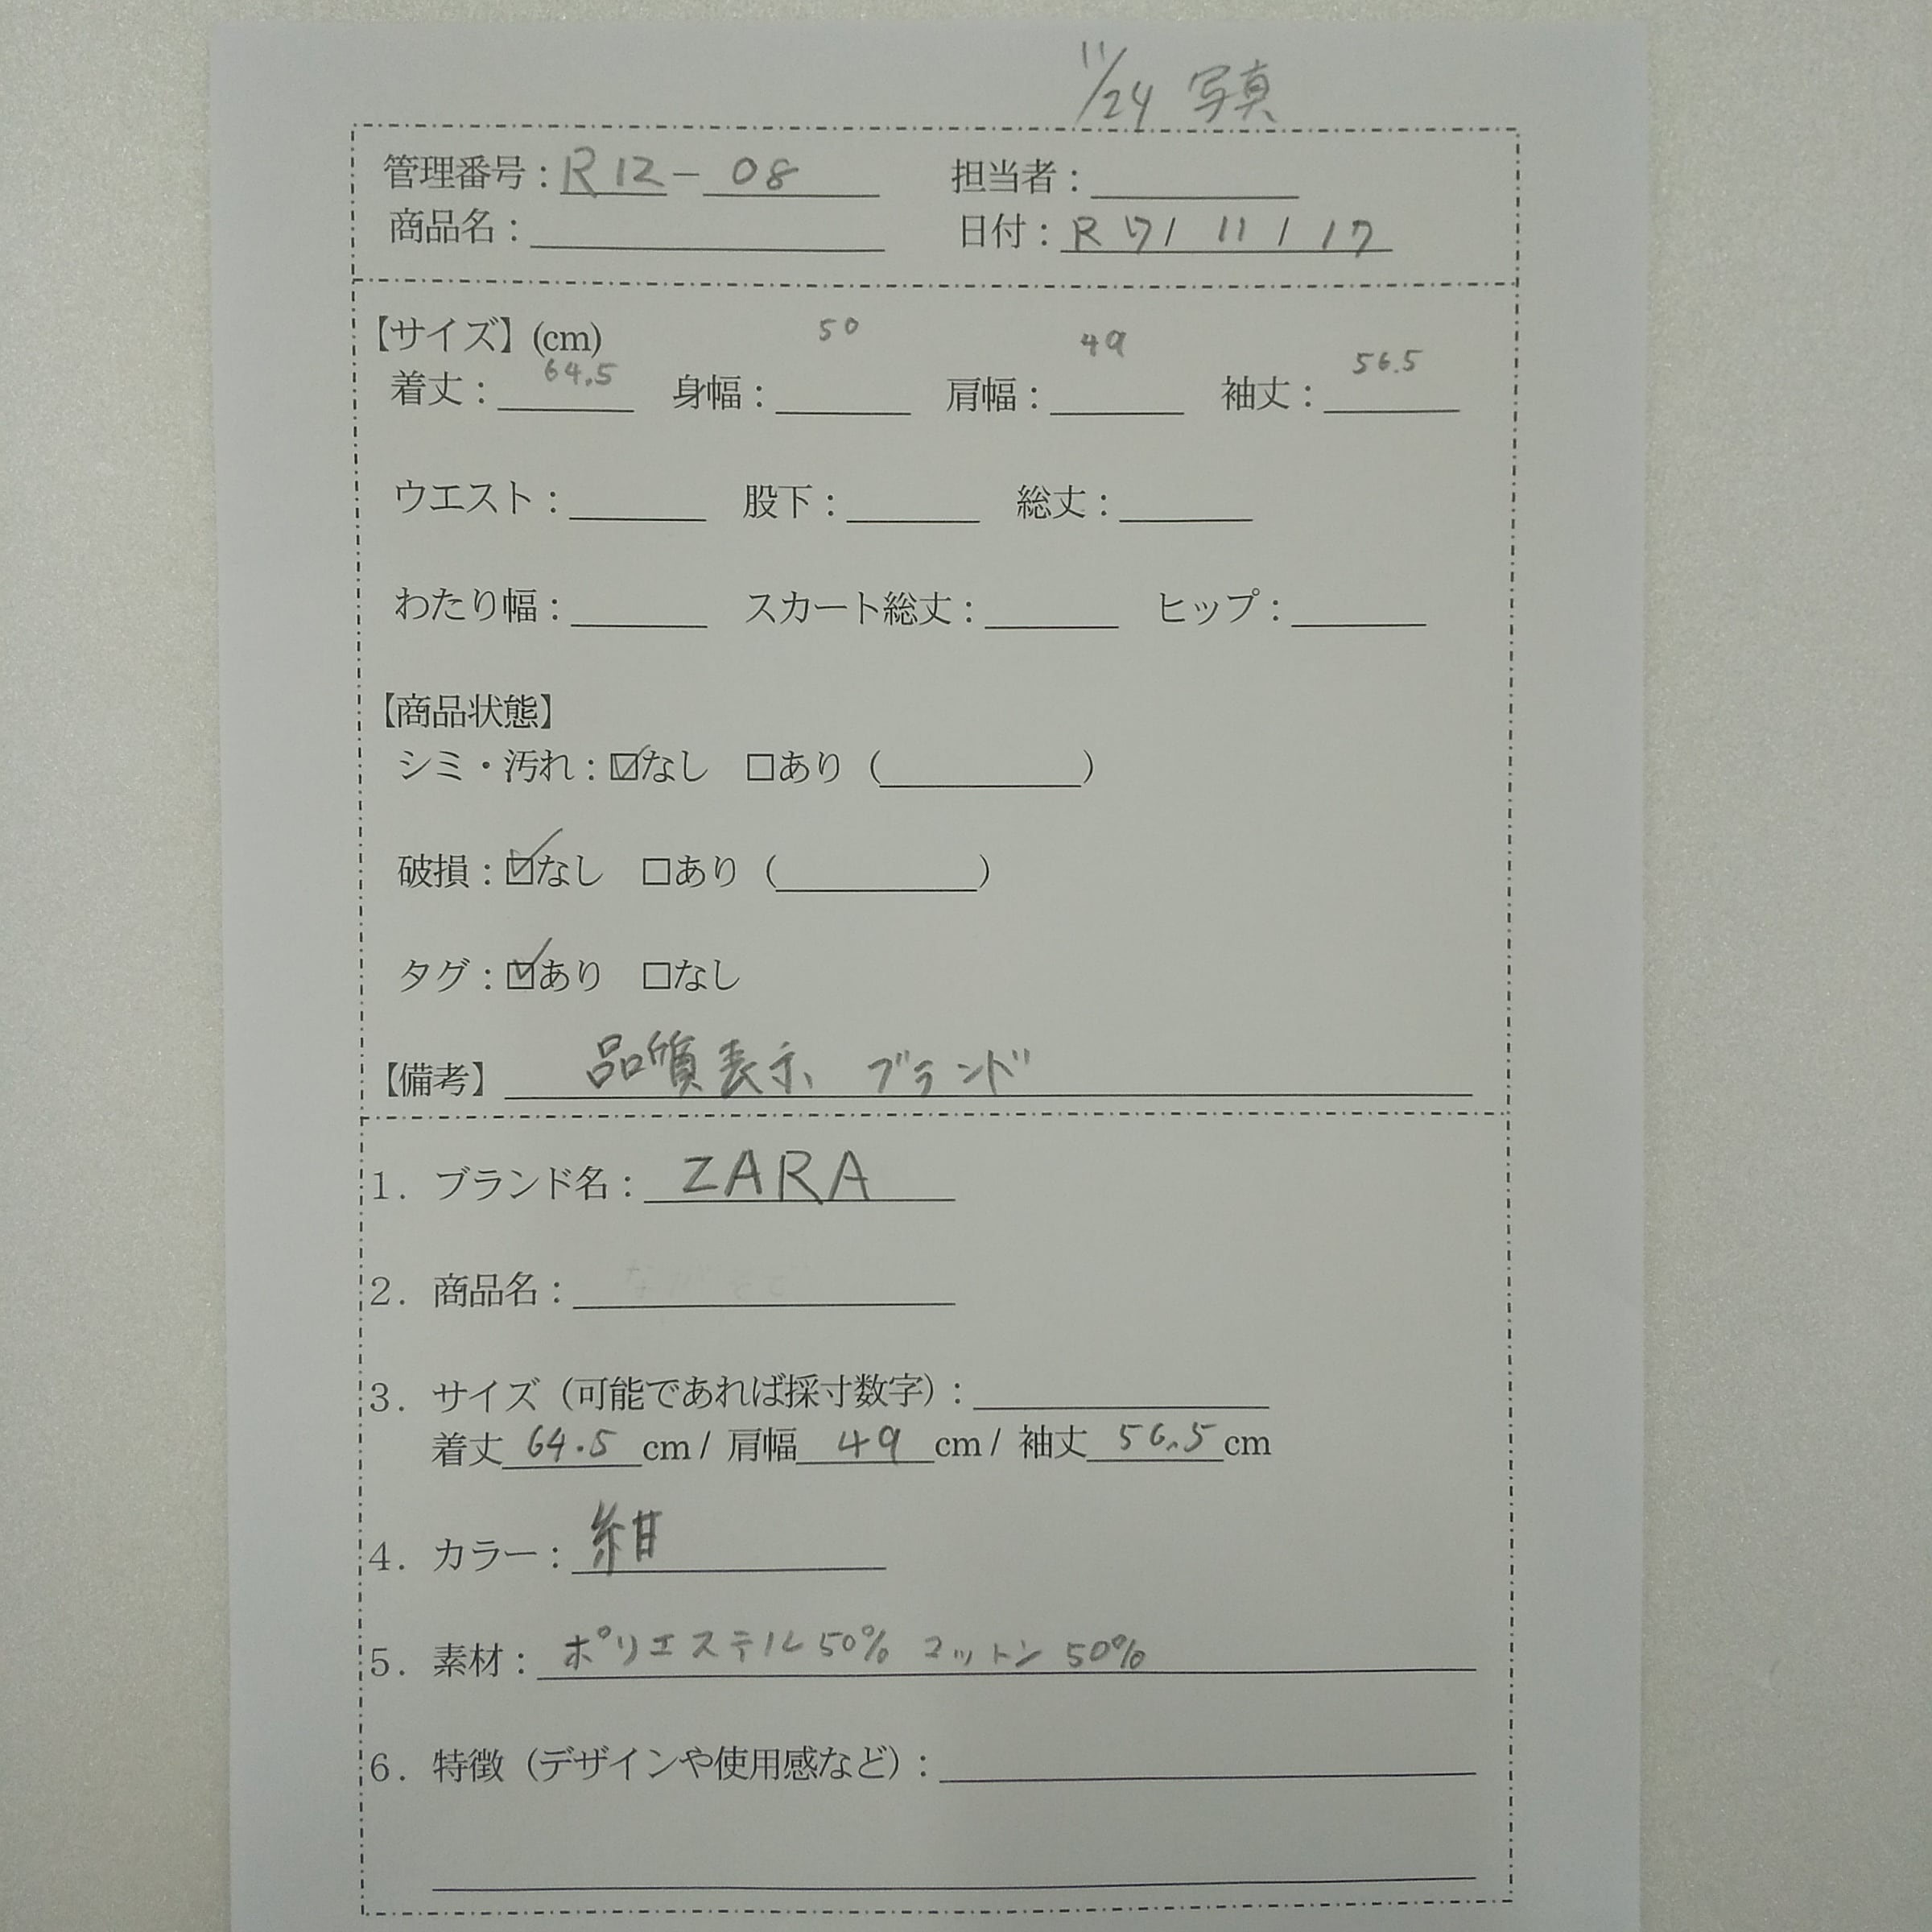 11/24 写真
管理番号：R12－08 担当者：
商品名： 日付：R7/11/17
【サイズ】(cm)
着丈：64.5 身幅：50 肩幅：49 袖丈：56.5
ウエスト： 股下： 総丈：
わたり幅： スカート総丈： ヒップ：
【商品状態】
シミ・汚れ：☑なし □あり（ ）
破損：☑なし □あり（ ）
タグ：☑あり □なし
【備考】 品質表示 ブランド
1．ブランド名：ZARA
2．商品名：
3．サイズ（可能であれば採寸数字）：
着丈 64.5 cm / 肩幅 49 cm / 袖丈 56.5 cm
4．カラー：紺
5．素材：ポリエステル50% コットン 50%
6．特徴（デザインや使用感など）：